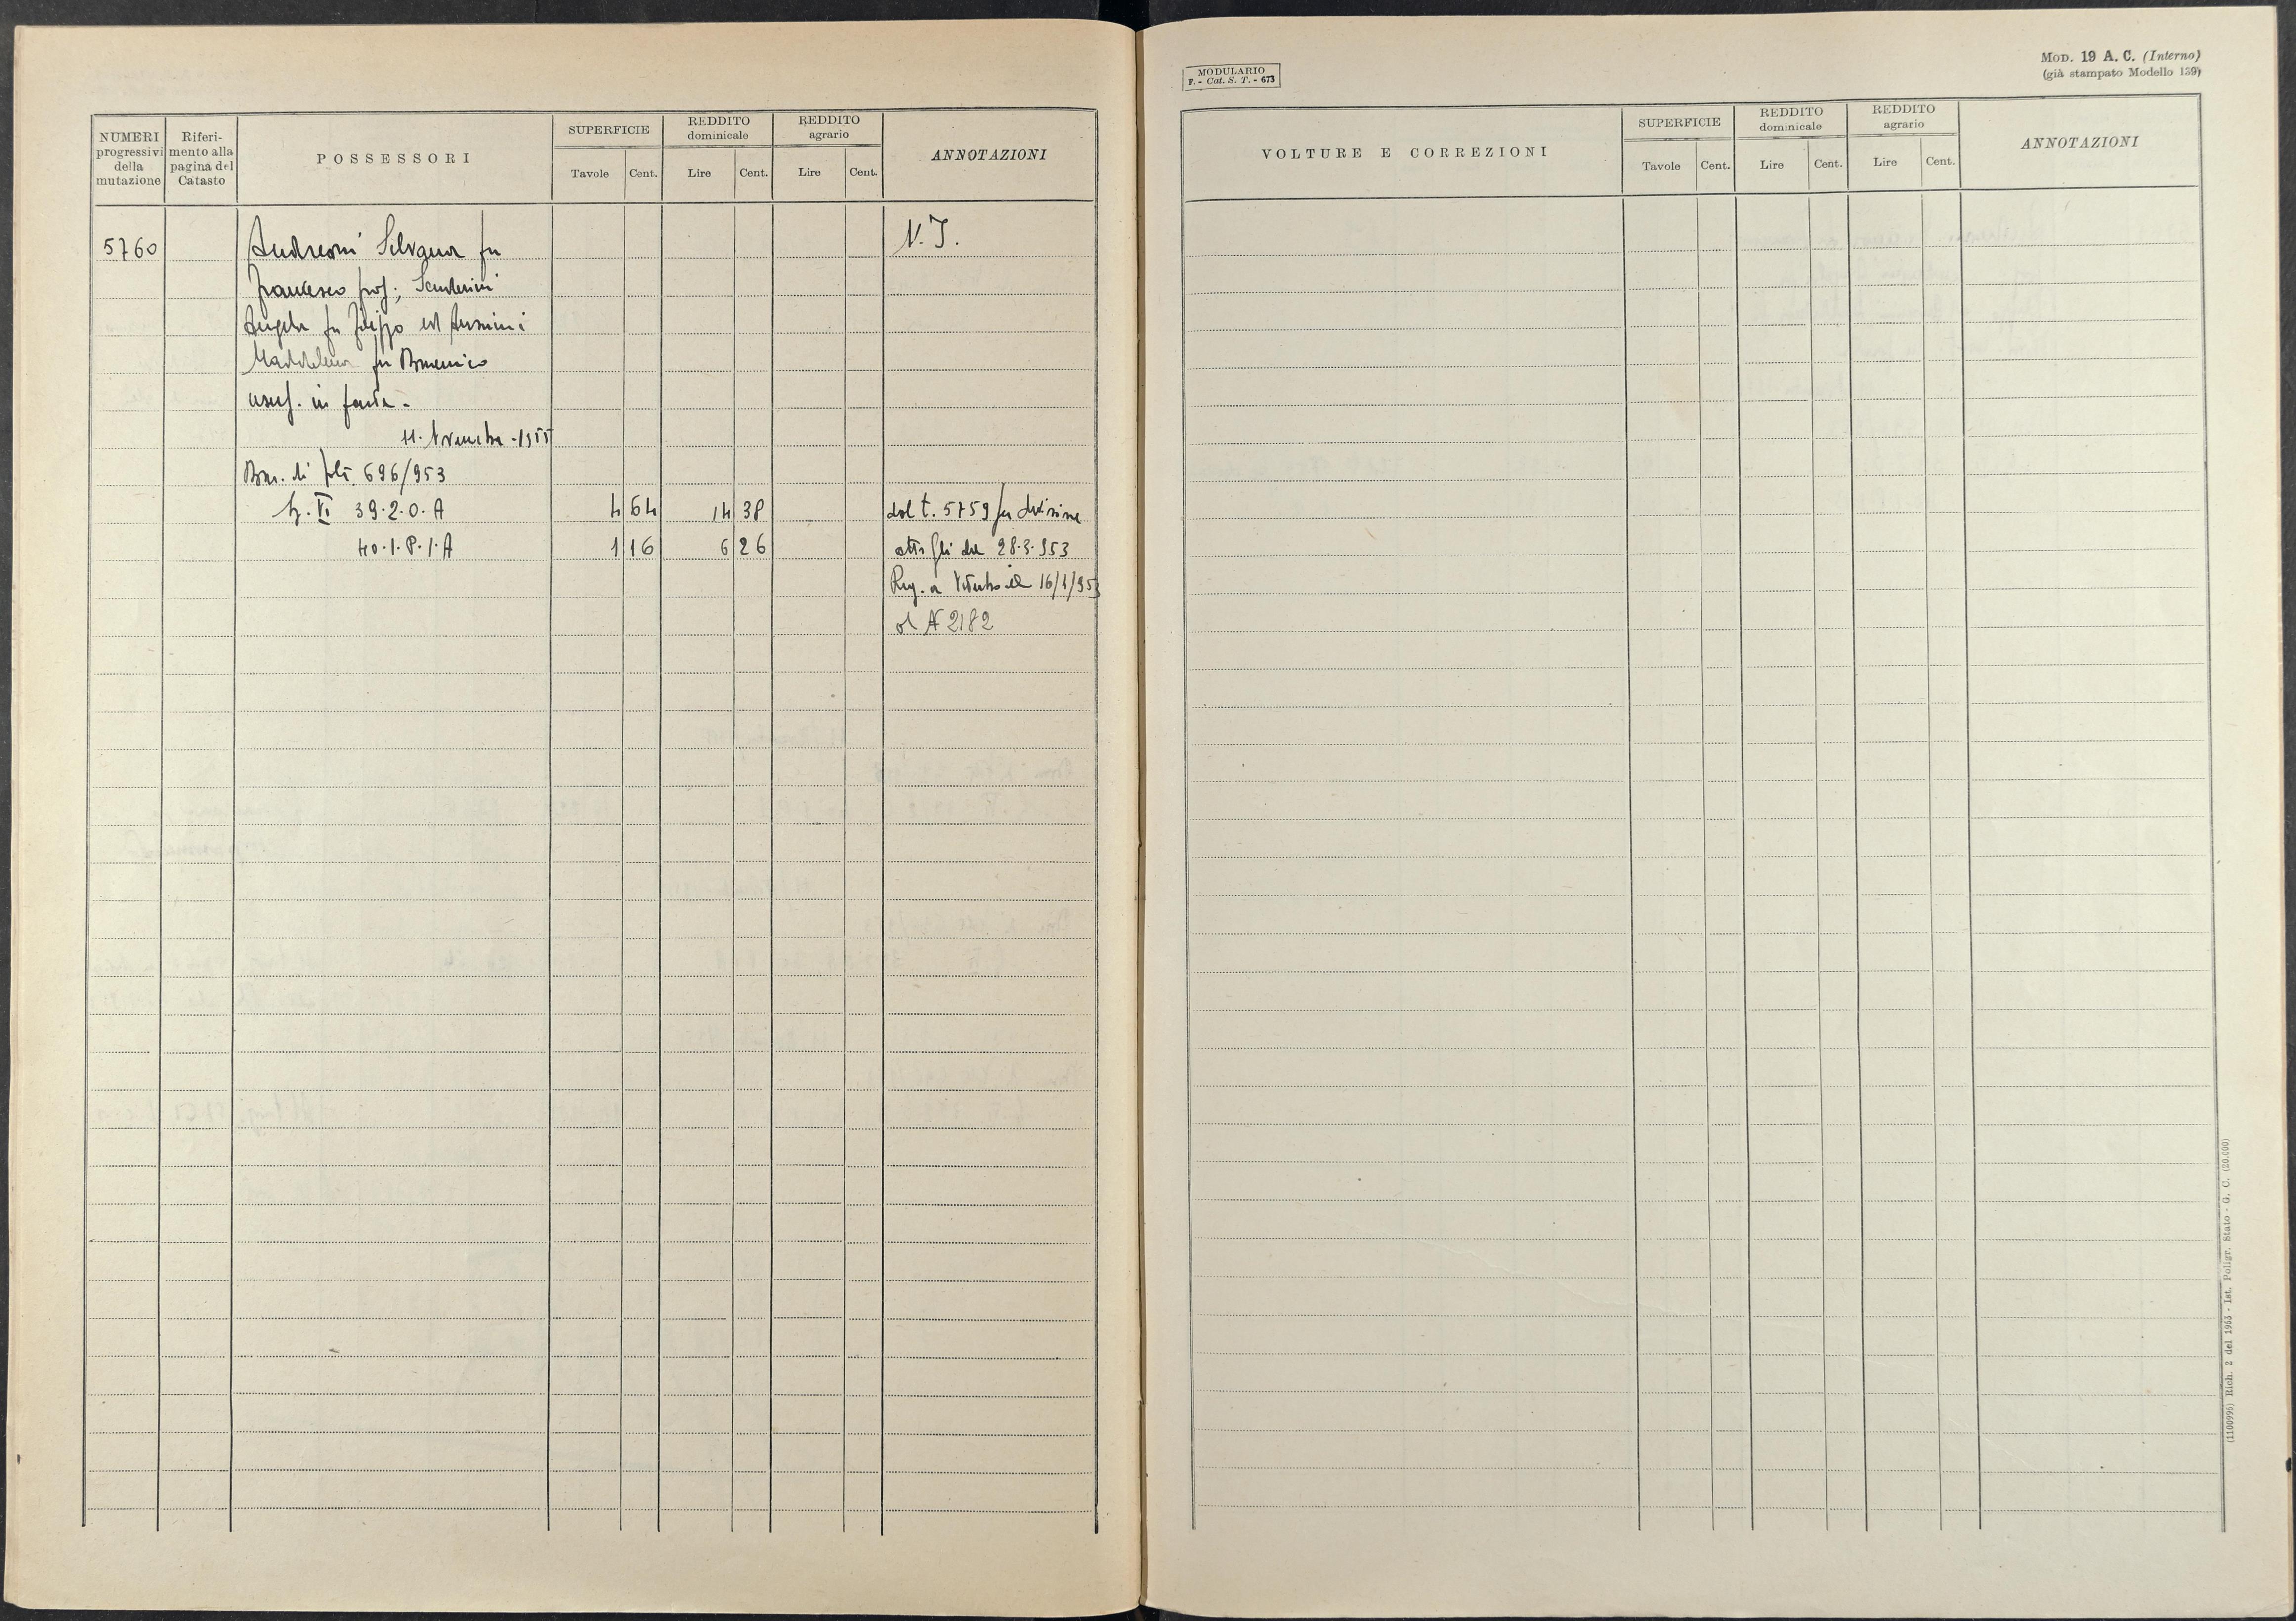 NUMERI progressivi della mutazione
Riferimento alla pagina del Catasto
POSSESSORI
SUPERFICIE
Tavole Cent.
REDDITO dominicale
Lire Cent.
REDDITO agrario
Lire Cent.
ANNOTAZIONI
5760 Andreoni Silvana fu N.I.
Francesco prop;
Angela fu Filippo ed
Maddalena fu Domenico
usuf. in parte -
Novembre -1955
696/953
39.2.0.A 4 64 14 38 dal t. 5759 per divisione
40.1.P.1.A 1 16 6 26 28.3.953
Reg. a Viterbo il 16/4/953
al N 2182
MODULARIO
F. - Cat. S. T. - 673
MOD. 19 A. C. (Interno)
(già stampato Modello 139)
VOLTURE E CORREZIONI
SUPERFICIE
Tavole Cent.
REDDITO dominicale
Lire Cent.
REDDITO agrario
Lire Cent.
ANNOTAZIONI
(1100996) Rich. 2 del 1953 - Ist. Poligr. Stato - G. C. (20.000)